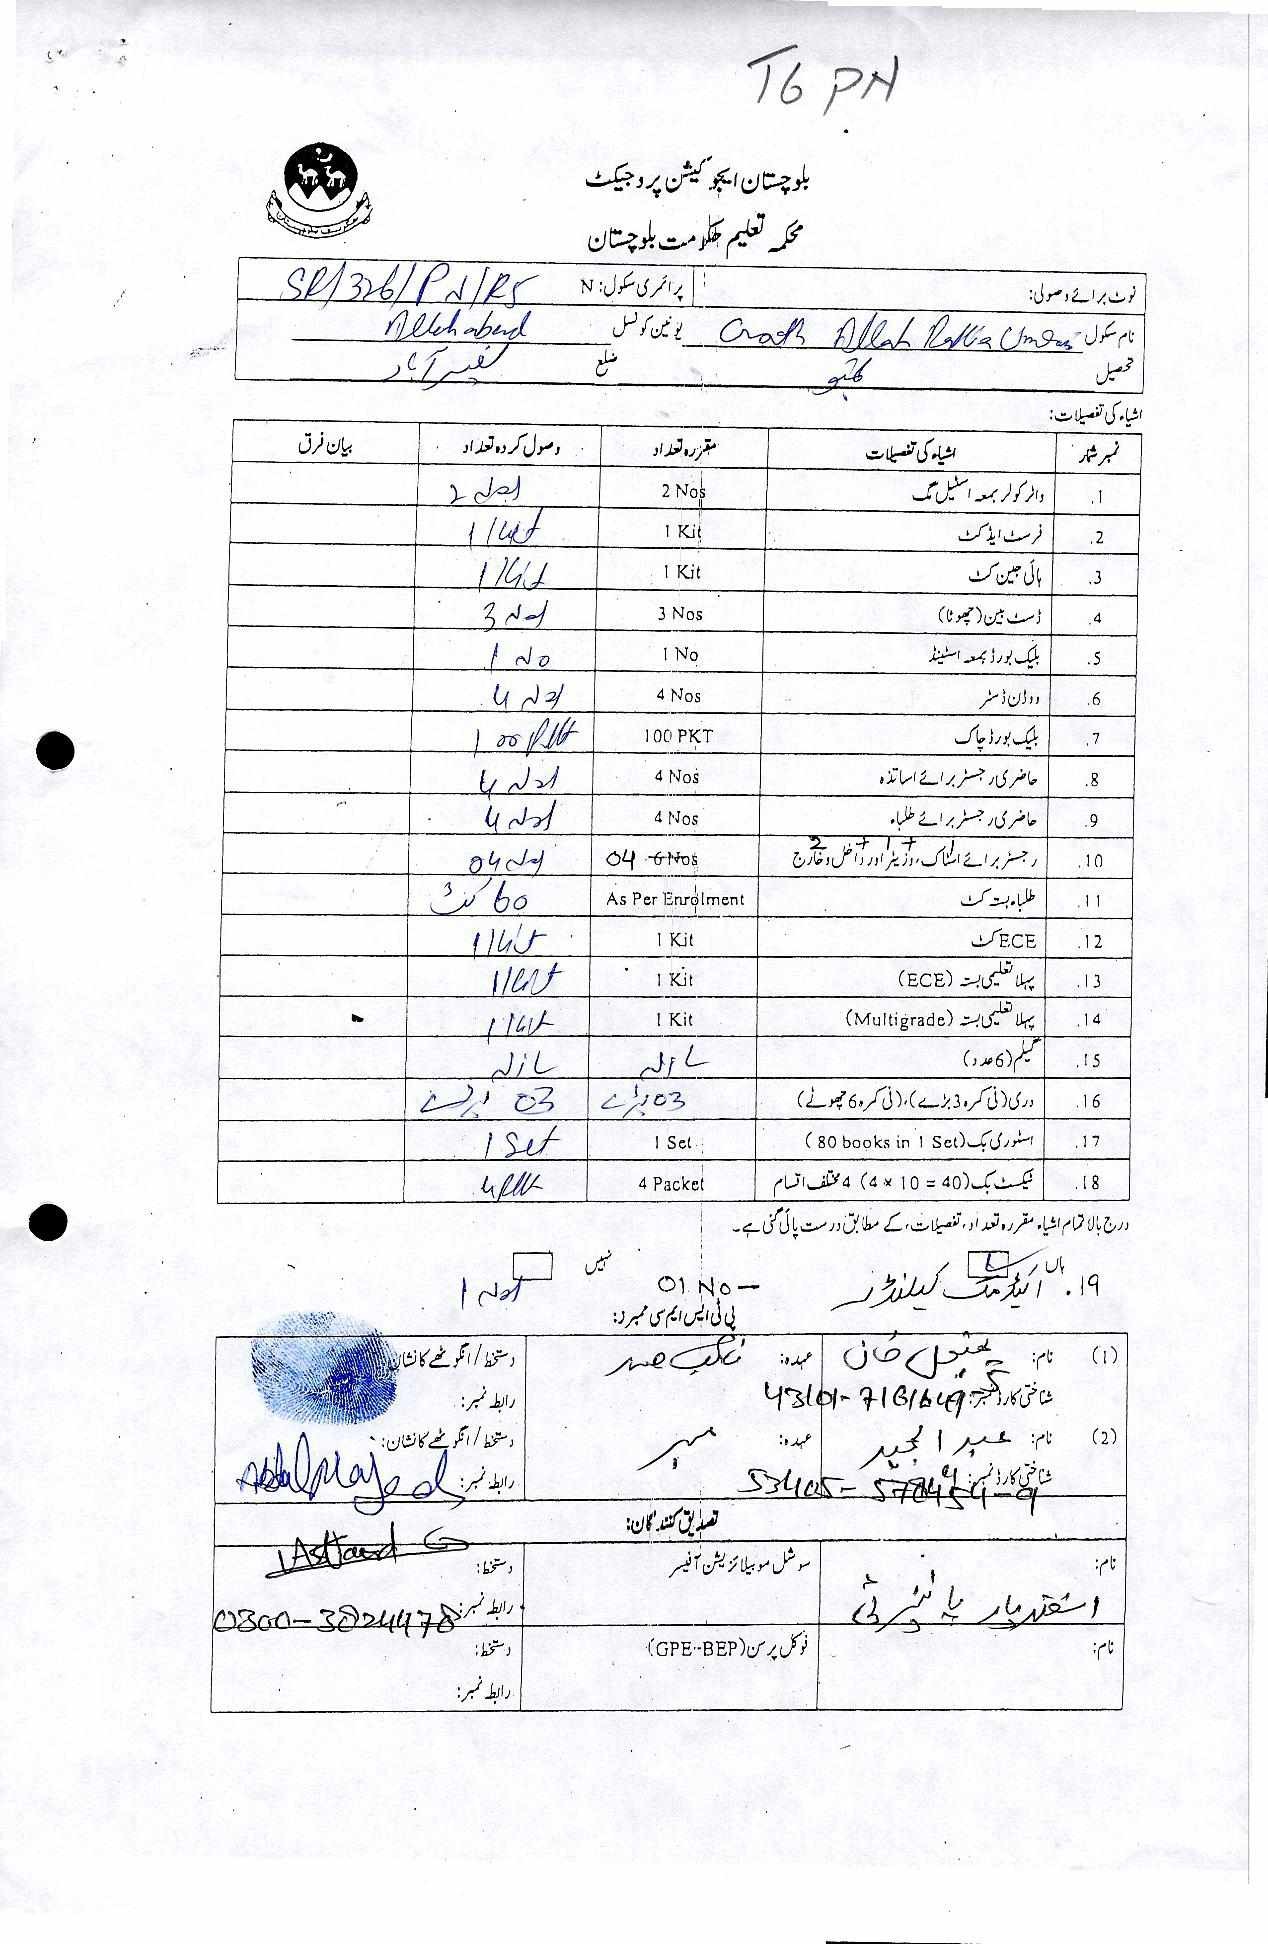 T6 PN
بلوچستان ایجوکیشن پروجیکٹ
محکمہ تعلیم حکومت بلوچستان
نوٹ برائے وصولی: پرائمری سکول: N SR/326/PN/RS
نام سکول Goth Allah Rakhia یونین کونسل Allahabad
تحصیل ضلع نصیر آباد
اشیاء کی تفصیلات:
نمبر شمار اشیاء کی تفصیلات مقررہ تعداد وصول کردہ تعداد بیان فرق
1. واٹر کولر بمعہ اسٹیل مگ 2 Nos 2 Nos
2. فرسٹ ایڈ کٹ 1 Kit 1 Kit
3. ہائی جین کٹ 1 Kit 1 Kit
4. ڈسٹ بین (چھوٹا) 3 Nos 3 Nos
5. بلیک بورڈ بمعہ اسٹینڈ 1 No 1 No
6. ووڈن ڈسٹر 4 Nos 4 Nos
7. بلیک بورڈ چاک 100 PKT 100 PKT
8. حاضری رجسٹر برائے اساتذہ 4 Nos 4 Nos
9. حاضری رجسٹر برائے طلباء 4 Nos 4 Nos
2 + 1 +
10. رجسٹر برائے اسٹاک، وزیٹر اور داخل و خارج 04 6 Nos 04 Nos
11. طلباء بستہ کٹ As Per Enrolment 60 کٹ
12. ECE کٹ 1 Kit 1 Kit
13. پہلا تعلیمی بستہ (ECE) 1 Kit 1 Kit
14. پہلا تعلیمی بستہ (Multigrade) 1 Kit 1 Kit
15. گیلم (6 عدد)
16. دری (فی کمرہ 3 بڑے)، (فی کمرہ 6 چھوٹے) 03 بڑے 03 بڑے
17. اسٹوری بک (80 books in 1 Set) 1 Set 1 Set
18. ٹیکسٹ بک (4 × 10 = 40) 4 مختلف اقسام 4 Packet 4 PKT
درج بالا تمام اشیاء مقررہ تعداد، تفصیلات، کے مطابق درست پائی گئی ہے۔
ہاں نہیں
19. اکیڈمک کیلنڈر 01 No 1 No
پی ٹی ایس ایم سی ممبرد:
(1) نام: خان عہدہ: نائب صدر دستخط / انگوٹھے کا نشان:
شناختی کارڈ نمبر: رابطہ نمبر:
(2) نام: عبد المجید عہدہ: ممبر دستخط / انگوٹھے کا نشان:
شناختی کارڈ نمبر: رابطہ نمبر: Abdul Majeed
تصدیق کنندگان:
نام: سوشل موبیلائزیشن آفیسر دستخط:
رابطہ نمبر: 0300-3824478
نام: فوکل پرسن (GPE-BEP) دستخط:
رابطہ نمبر: